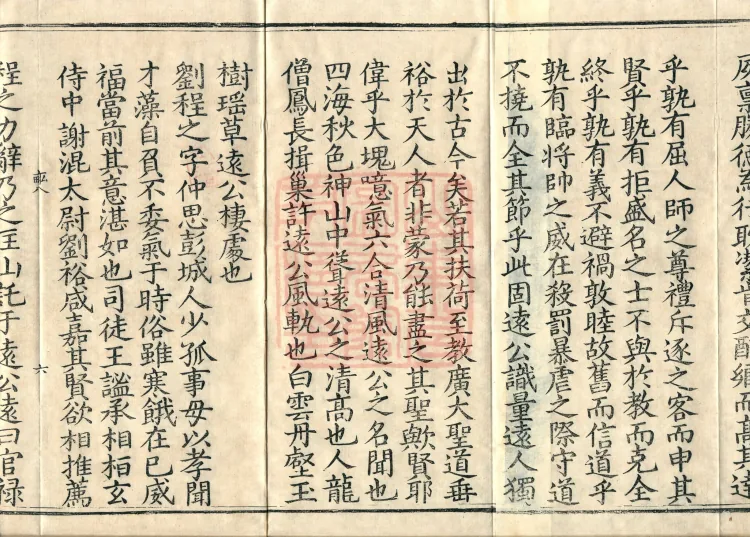 夙稟勝德為行耿潔肯交酔鄉而高其達
乎孰有屈人師之尊禮斥逐之客而申其
賢乎孰有拒盛名之士不與於教而克全
終乎孰有義不避禍敦睦故舊而信道乎
孰有臨將帥之威在殺罰暴虐之際守道
不撓而全其節乎此固遠公識量遠人獨
出於古今矣若其扶荷至教廣大聖道垂
裕於天人者非蒙乃能盡之其聖歟賢耶
偉乎大塊噫氣六合清風遠公之名聞也
四海秋色神山中聳遠公之清高也人龍
僧鳳長揖巢許遠公風軌也白雲丹壑玉
樹瑶草遠公棲處也
劉程之字仲思彭城人少孤事母以孝聞
才藻自負不委氣于時俗雖寒餓在已威
福當前其意湛如也司徒王謐承相桓玄
侍中謝混太尉劉裕咸嘉其賢欲相推薦
六
程之力辭乃之匡山託于遠公遠曰官祿